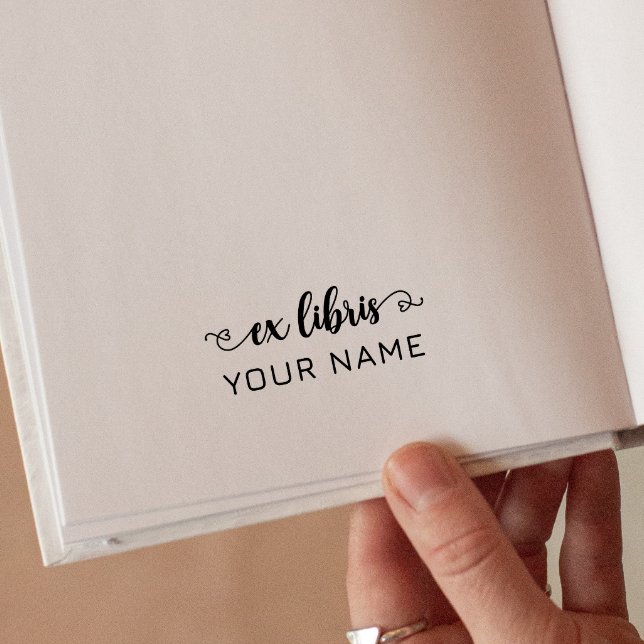 ex libris
YOUR NAME